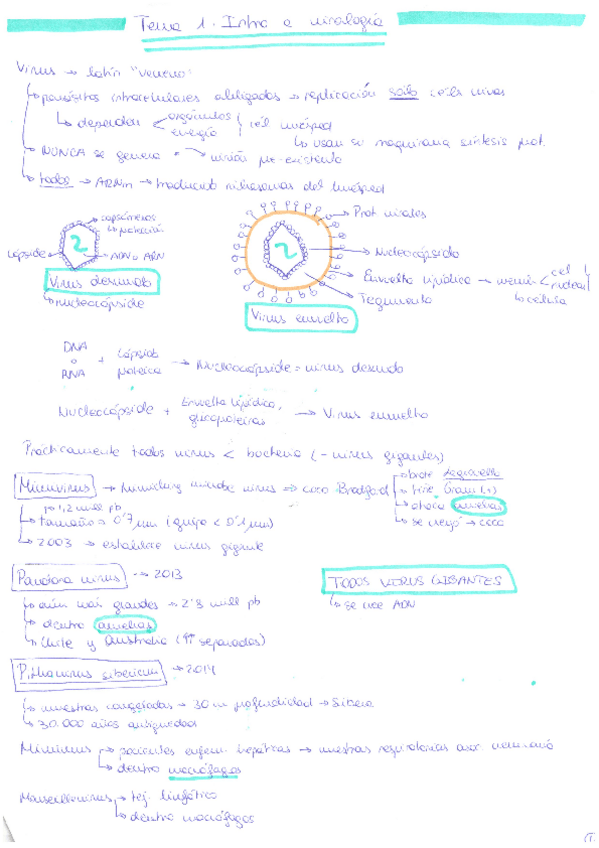 Tema 1. Intro a virología
Virus → latín "veneno"
↳ parásitos intracelulares obligados → replicación solo céls vivas
↳ dependen < orgánulos energía } cél huésped
↳ usan su maquinaria síntesis prot.
↳ NUNCA se genera → virión pre-existente
↳ todos → ARNm → traducido ribosomas del huésped
capsómeros
↳ protección
cápside
ADN o ARN
2
Virus desnudo
↳ nucleocápside
2
Prot. virales
Nucleocápside
Envuelta lipídica → memb < cel nuclear
↳ célula
Tegumento
Virus envuelto
DNA o RNA + Cápside proteica → Nucleocápside = virus desnudo
Nucleocápside + Envuelta lipídica, glicoproteínas → Virus envuelto
Prácticamente todos virus < bacteria (- virus gigantes)
Mimivirus → mimicking microbe virus → coco Bradford
↳ brote Legionella
↳ tiñe Gram (+)
↳ ataca amebas
↳ se creyó → coco
↳ 1,2 mill pb
↳ tamaño = 0'7 µm (grupo < 0'1 µm)
↳ 2003 → establece virus gigante
Pandora virus → 2013
↳ aún más grandes → 2'8 mill pb
↳ dentro amebas
↳ Chile y Australia (↑↑ separados)
TODOS VIRUS GIGANTES
↳ ADN
Pithovirus sibericum → 2014
↳ muestras congeladas → 30 m profundidad → Siberia
↳ 30.000 años antigüedad
Mimivirus → pacientes enferm. hepáticas → muestras respiratorias neumonía
↳ dentro macrófagos
Marseillevirus → tej. linfático
↳ dentro macrófagos